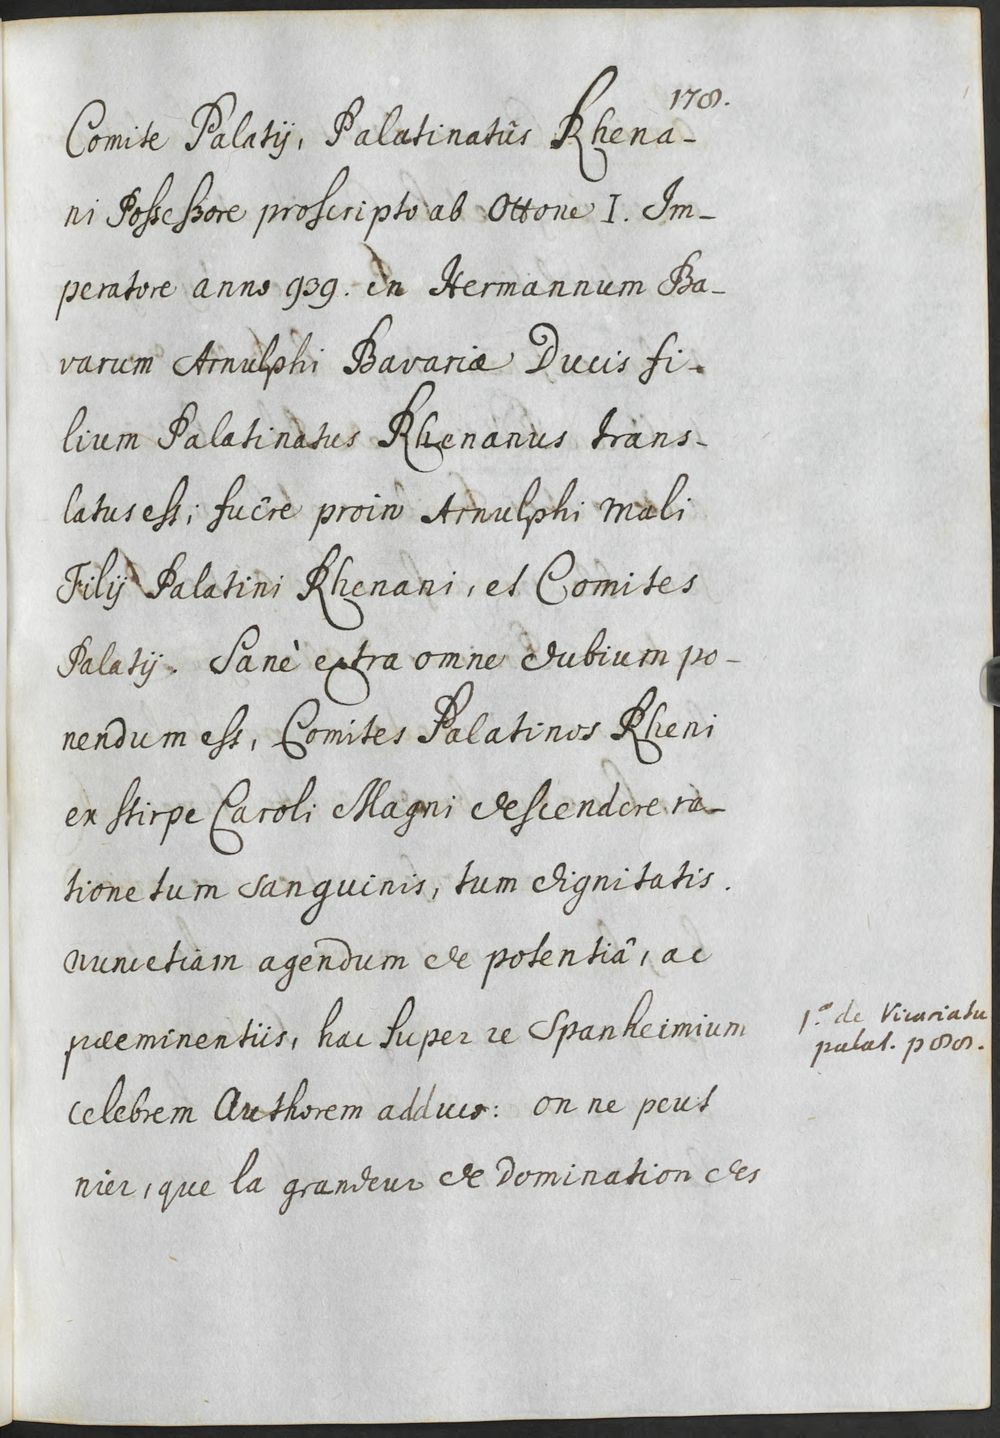 178.
Comite Palatij, Palatinatûs Rhena-
ni Possessore proscripto ab Ottone I. Im-
peratore anno 939. in Hermannum Ba-
varum Arnulphi Bavariæ Ducis fi-
lium Palatinatus Rhenanus trans-
latus est; fuêre proin Arnulphi Mali
Filij Palatini Rhenani, et Comites
Palatij. Sanè extra omne dubium po-
nendum est, Comites Palatinos Rheni
ex stirpe Caroli Magni descendere ra-
tione tum sanguinis, tum dignitatis.
nunc etiam agendum de potentiâ, ac
præeminentiis, hac super re Spanheimium
celebrem Authorem adduco: on ne peut
nier, que la grandeur de Domination des
1.º de Vicariatu
palat. p 88.